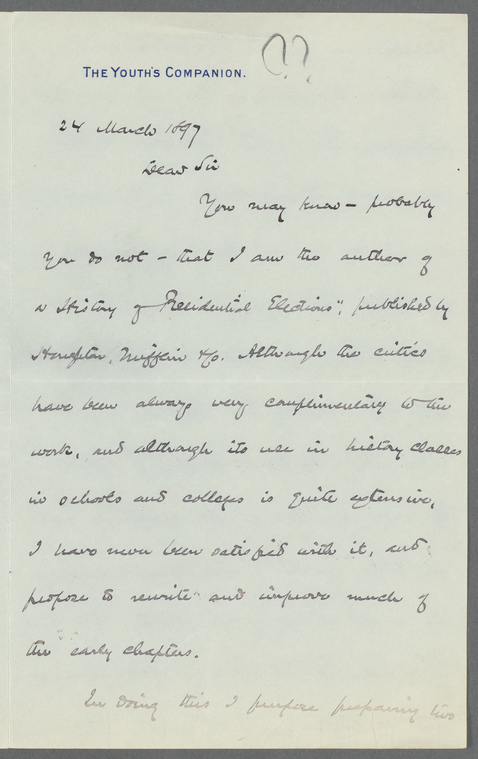 THE YOUTH'S COMPANION.
??
24 March 1897
Dear Sir
You may know – probably
you do not – that I am the author of
a History of Presidential Elections", published by
Houghton, Mifflin & Co. Although the critics
have been always very complimentary to the
work, and although its use in history classes
in schools and colleges is quite extensive,
I have never been satisfied with it, and
propose to rewrite and improve much of
the early chapters.
In doing this I propose preparing two